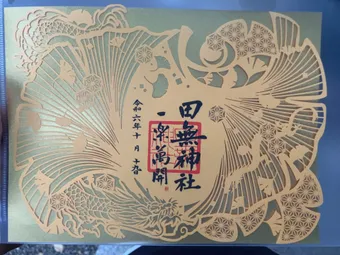 田無神社
一樂萬開
令和六年十月十五日